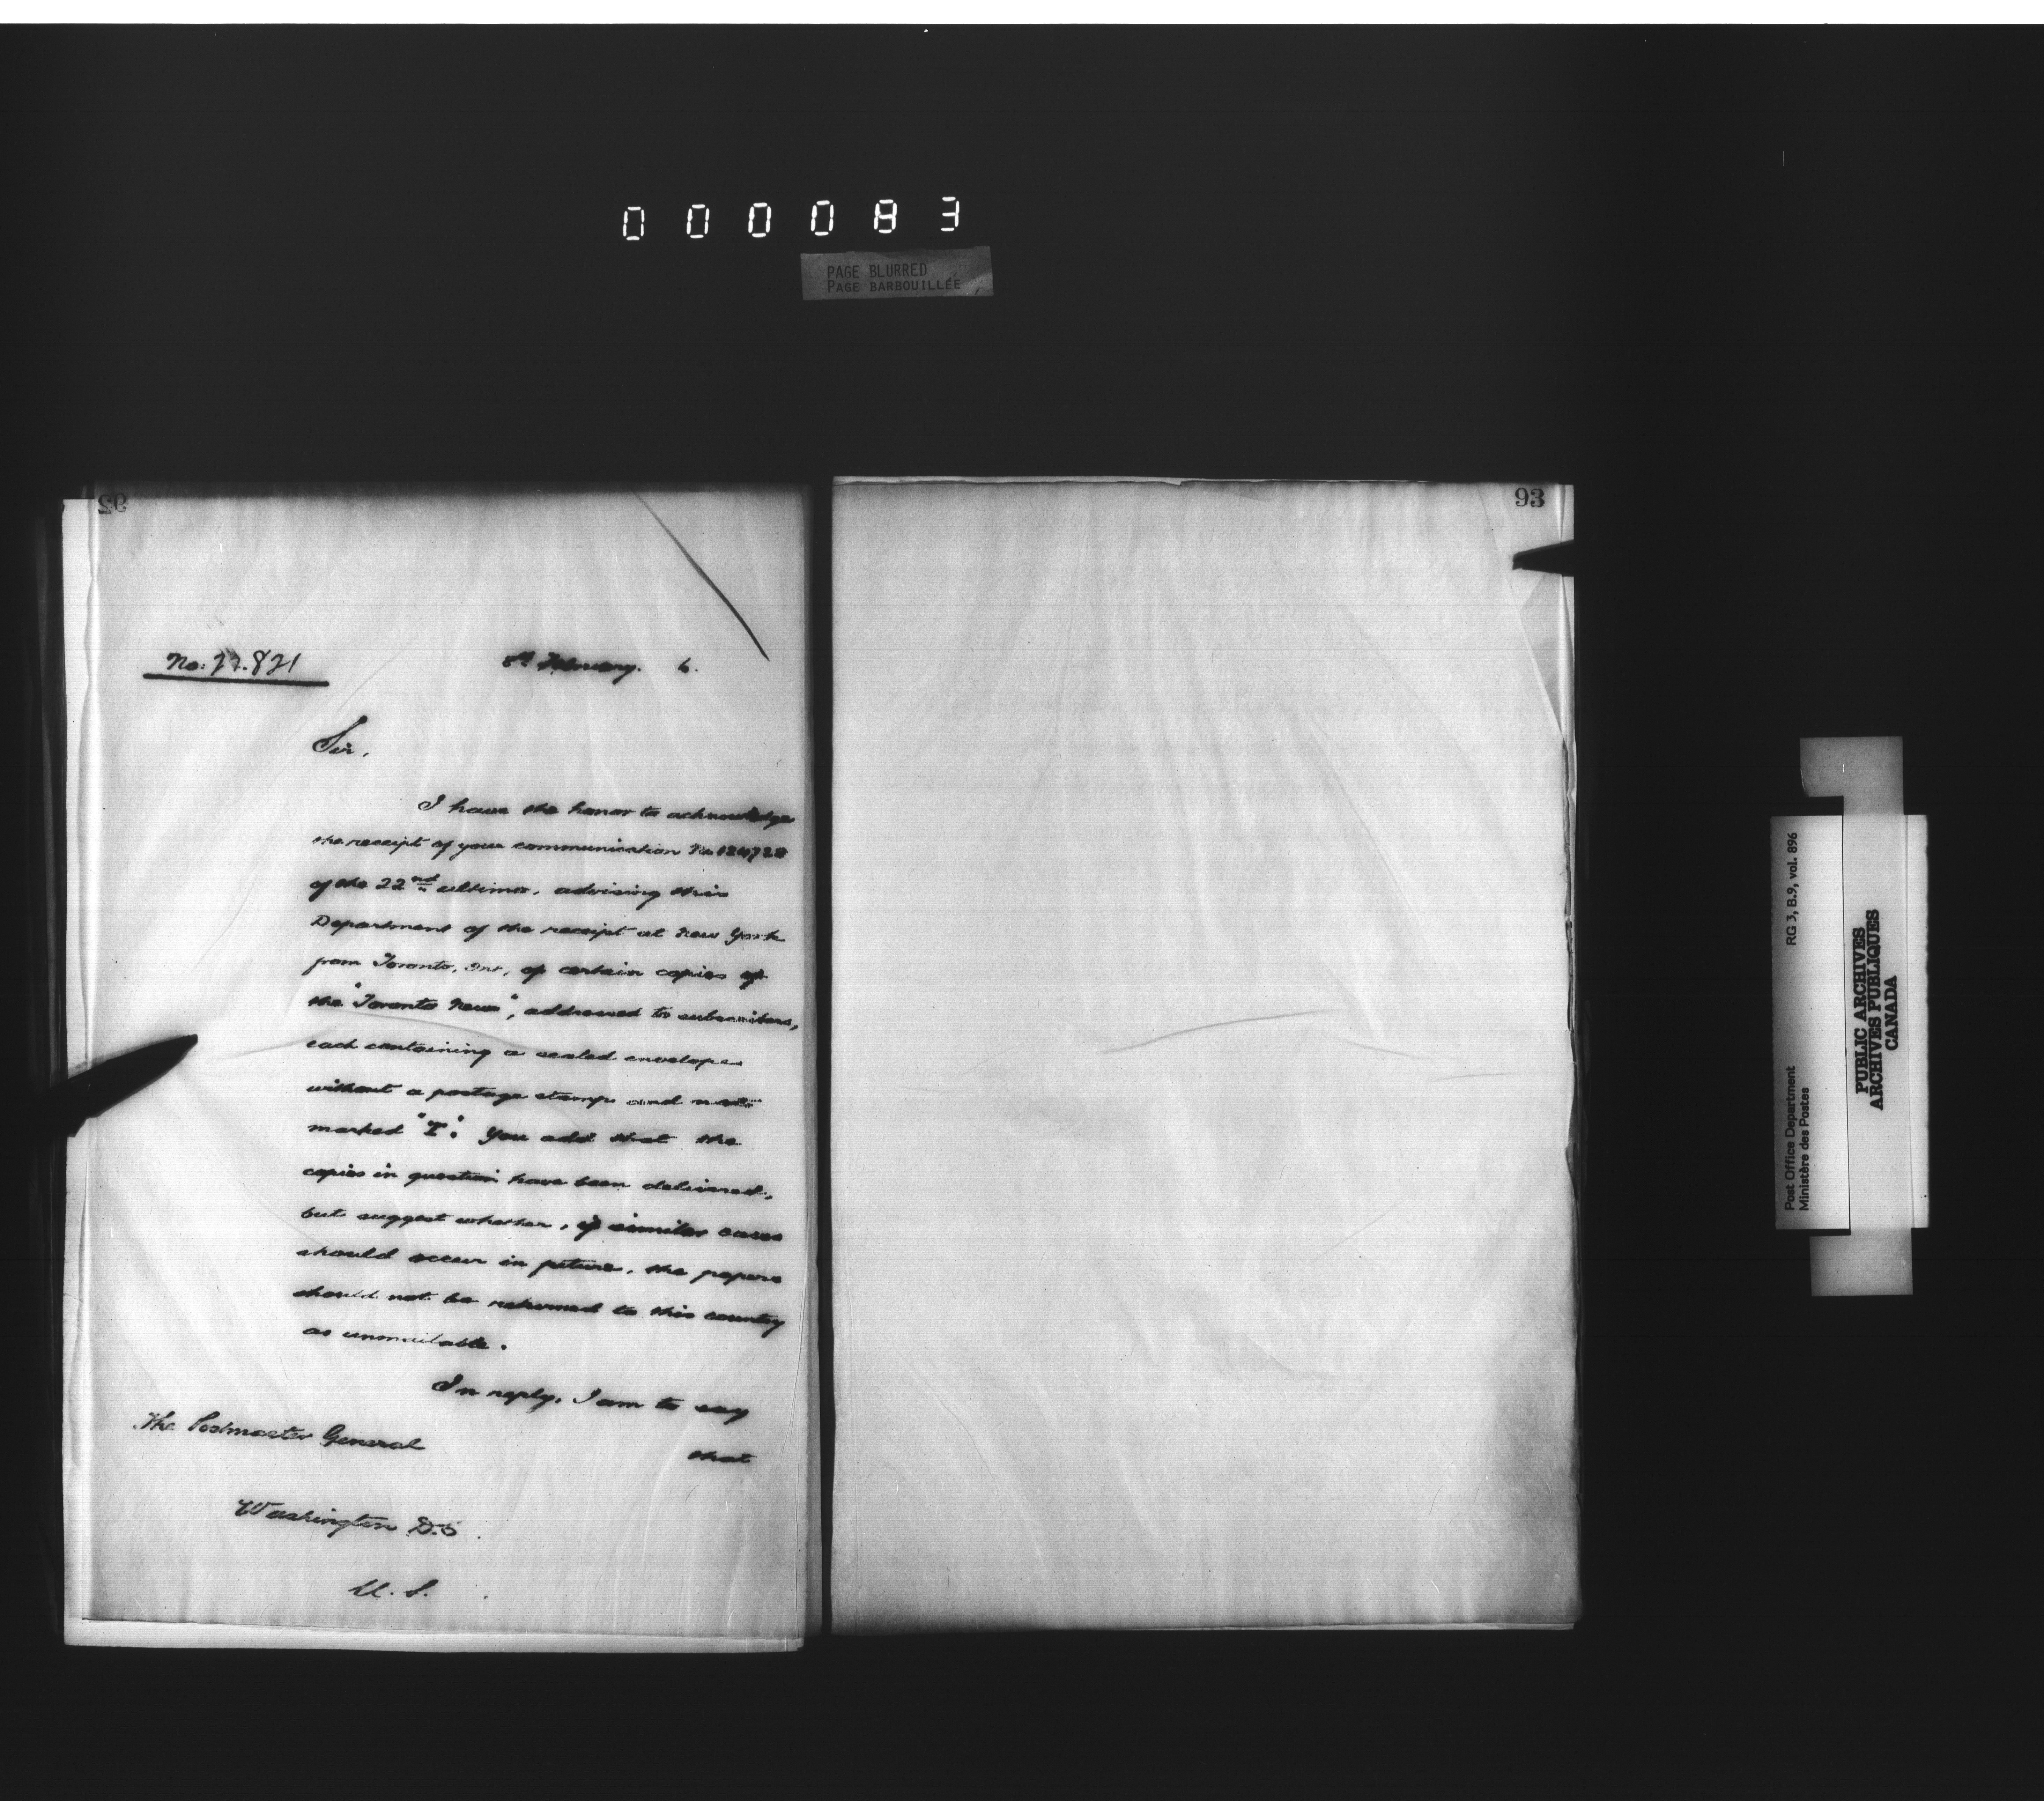 000083
PAGE BLURRED
PAGE BARBOUILLÉE
92
93
No: 821
February. 6.
Sir,
I have the honor to acknowledge
the receipt of your communication No
of the 22nd ultimo, advising this
Department of the receipt at New York
from Toronto, Ont, of certain copies of
the "Toronto News", addressed to subscribers,
each containing a sealed envelope
without a postage stamp and not
marked "T". You add that the
copies in question have been delivered,
but suggest whether, if similar cases
should occur in future, the papers
should not be returned to this country
as unmailable.
In reply, I am to say
that
The Postmaster General
Washington D.C.
U.S.
Post Office Department RG 3, B.9, vol. 896
Ministère des Postes
PUBLIC ARCHIVES
ARCHIVES PUBLIQUES
CANADA